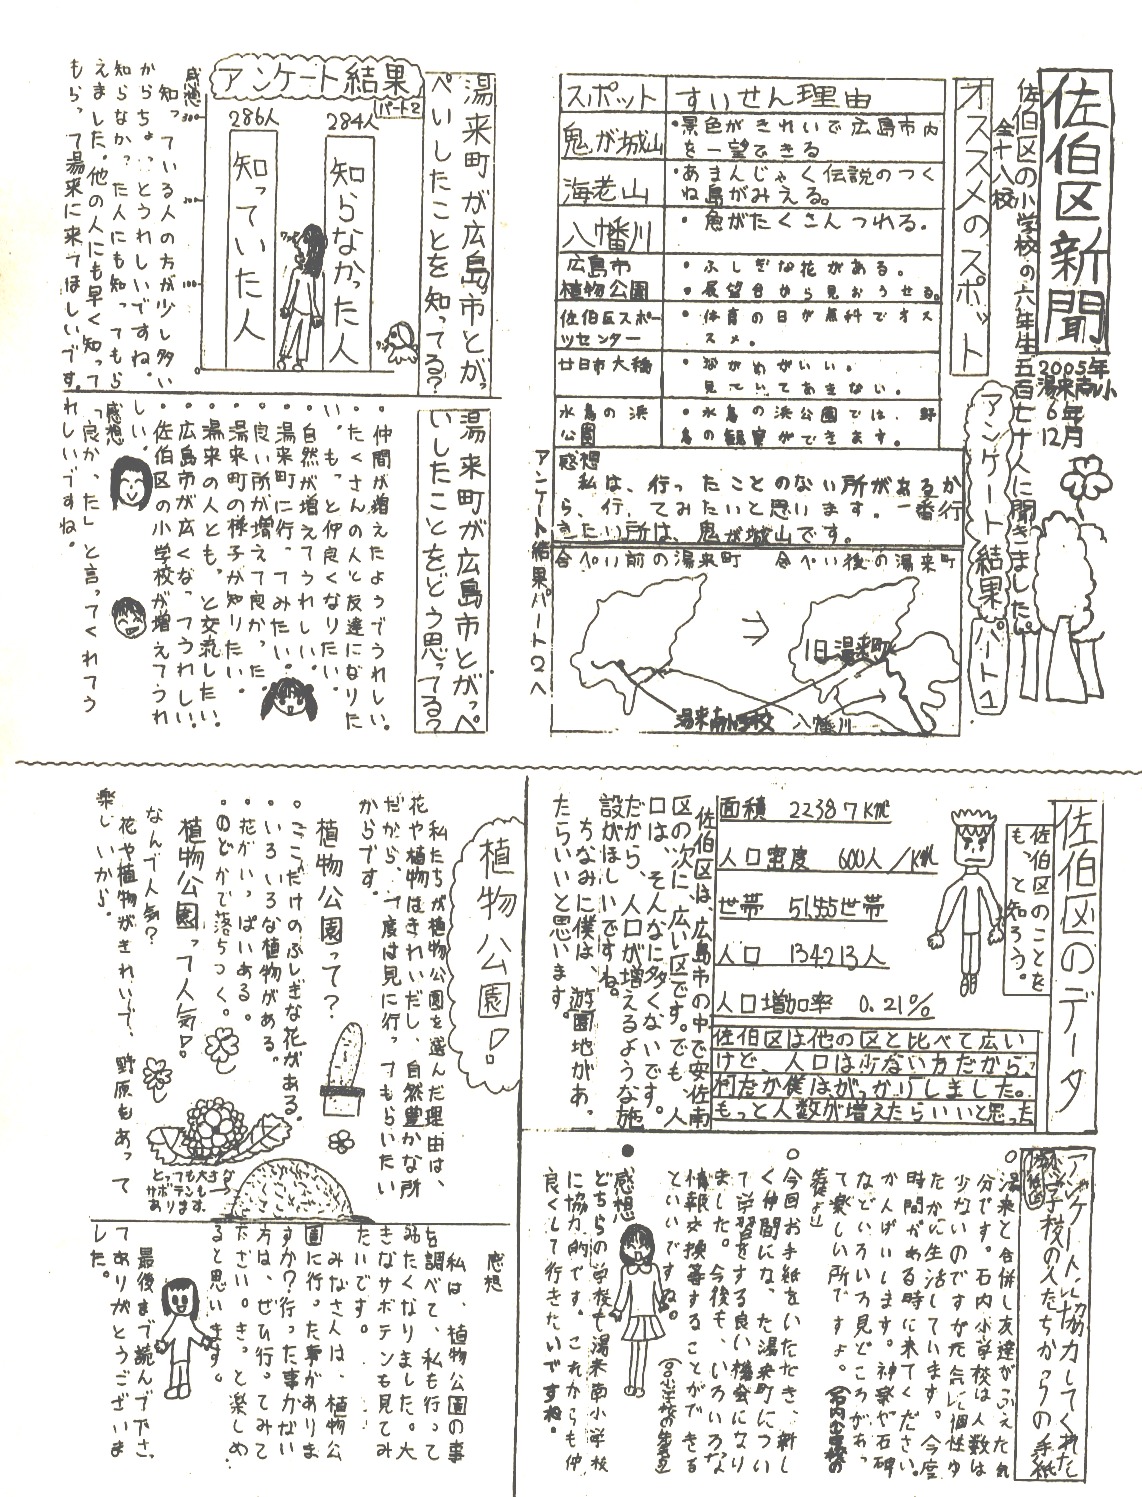 佐伯区新聞
2005年
湯来南小
6年
12月
佐伯区の小学校の六年生五百七十人に聞きました。
全十八校
アンケート結果パート1
オススメのスポット
スポット すいせん理由
鬼が城山 ・景色がきれいで広島市内
を一望できる
海老山 ・あまんじゃく伝説のつく
ね島がみえる。
八幡川 ・魚がたくさんつれる。
広島市
植物公園
・ふしぎな花がある。
・展望台から見おろせる。
佐伯区スポー
ツセンター
・体育の日が無料でオス
スメ。
廿日市大橋
・ながめがいい。
見ていてあきない。
水鳥の浜
公園
・水鳥の浜公園では、野
鳥の観察ができます。
感想
私は、行ったことのない所があるか
ら、行ってみたいと思います。一番行
きたい所は、鬼が城山です。
合ぺい前の湯来町 合ぺい後の湯来町
旧湯来町
湯来南小学校
八幡川
アンケート結果パート2へ
湯来町が広島市とがっ
ぺいしたことを知ってる?
アンケート結果
パート2
284人
知らなかった人
286人
知っていた人
300
200
100
0
感想
知っている人の方が少し多い
からちょっとうれしいですね。
知らなかった人にも知ってもら
えました。他の人にも早く知って
もらって湯来に来てほしいです。
湯来町が広島市とがっぺ
いしたことをどう思ってる?
・仲間が増えたようでうれしい。
・たくさんの人と友達になりた
い。もっと仲良くなりたい。
・自然が増えてうれしい。
・湯来町に行ってみたい。
・良い所が増えて良かった。
・湯来町の様子が知りたい。
・湯来の人とも、っと交流したい。
・広島市が広くなってうれしい!
・佐伯区の小学校が増えてうれ
しい。
感想
「良かった」と言ってくれてう
れしいですね。
佐伯区のデータ
佐伯区のことを
もっと知ろう。
面積 223.87K㎡
人口密度 600人/K㎡
世帯 51,555世帯
人口 134,213人
人口増加率 0.21%
佐伯区は他の区と比べて広い
けど、人口は少ない方だから、
何だか僕はがっかりしました。
もっと人数が増えたらいいと思った
佐伯区は、広島市の中で安佐南
区の次に、広い区です。でも、人
口は、そんなに多くないです。
だから、人口が増えるような施
設がほしいですね。
ちなみに僕は、遊園地があっ
たらいいと思います。
アンケートに協力してくれた
小学校の人たちからの手紙
○湯来と合併し友達がふえた気
分です。石内小学校は人数は
少ないのですが元気に個性ゆ
たかに生活しています。今度
時間がある時に来てください。
かんげいします。神楽や石碑
などいろいろ見どころがあっ
て楽しい所ですよ。
○今回お手紙をいただき、新し
く仲間になった湯来町につい
て学習をする良い機会になり
ました。今後も、いろいろな
情報交換等することができる
といいですね。
●感想
どちらの学校も湯来南小学校
に協力的です。これからも仲
良くして行きたいですね。
植物公園!
私たちが植物公園を選んだ理由は、
花や植物はきれいだし、自然豊かな所
だから、一度は見に行ってもらいたい
からです。
植物公園って?
・ここだけのふしぎな花がある。
・いろいろな植物がある。
・花がいっぱいある。
・のどかで落ちつく。
植物公園って人気!
なんで人気?
花や植物がきれいで、野原もあって
楽しいから。
とっても大きな
サボテンも
あります。
感想
私は、植物公園の事
を調べて、私も行って
みたくなりました。大
きなサボテンも見てみ
たいです。
みなさんは、植物公
園に行った事がありま
すか?行った事がない
方は、ぜひ行ってみて
下さい。きっと楽しめ
ると思います。
最後まで読んで下さっ
てありがとうございま
した。